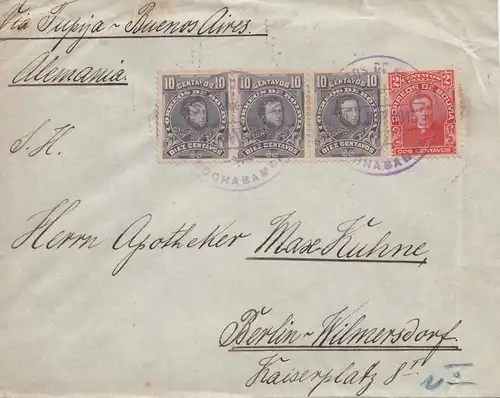 Via Tupiza - Buenos Aires.
Alemania.
10 CENTAVOS 10
CORREOS DE BOLIVIA
DIEZ CENTAVOS
10 CENTAVOS 10
CORREOS DE BOLIVIA
DIEZ CENTAVOS
10 CENTAVOS 10
CORREOS DE BOLIVIA
DIEZ CENTAVOS
2 CENTAVOS 2
CORREOS DE BOLIVIA
DOS CENTAVOS
COCHABAMBA
COCHABAMBA
S. H.
Herrn Apotheker Max Kuhne,
Berlin - Wilmersdorf.
Kaiserplatz 8